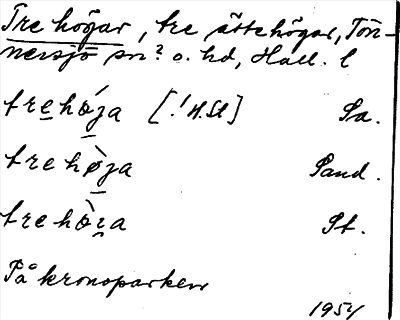 Tre högar, tre ättehögar, Tön-
nersjö sn? o. hd, Hall. l
trehø̀ʒa [! H.St] Sa.
trehø̀ʒa Sand.
trehø̀ʒa St.
På kronoparken
1954